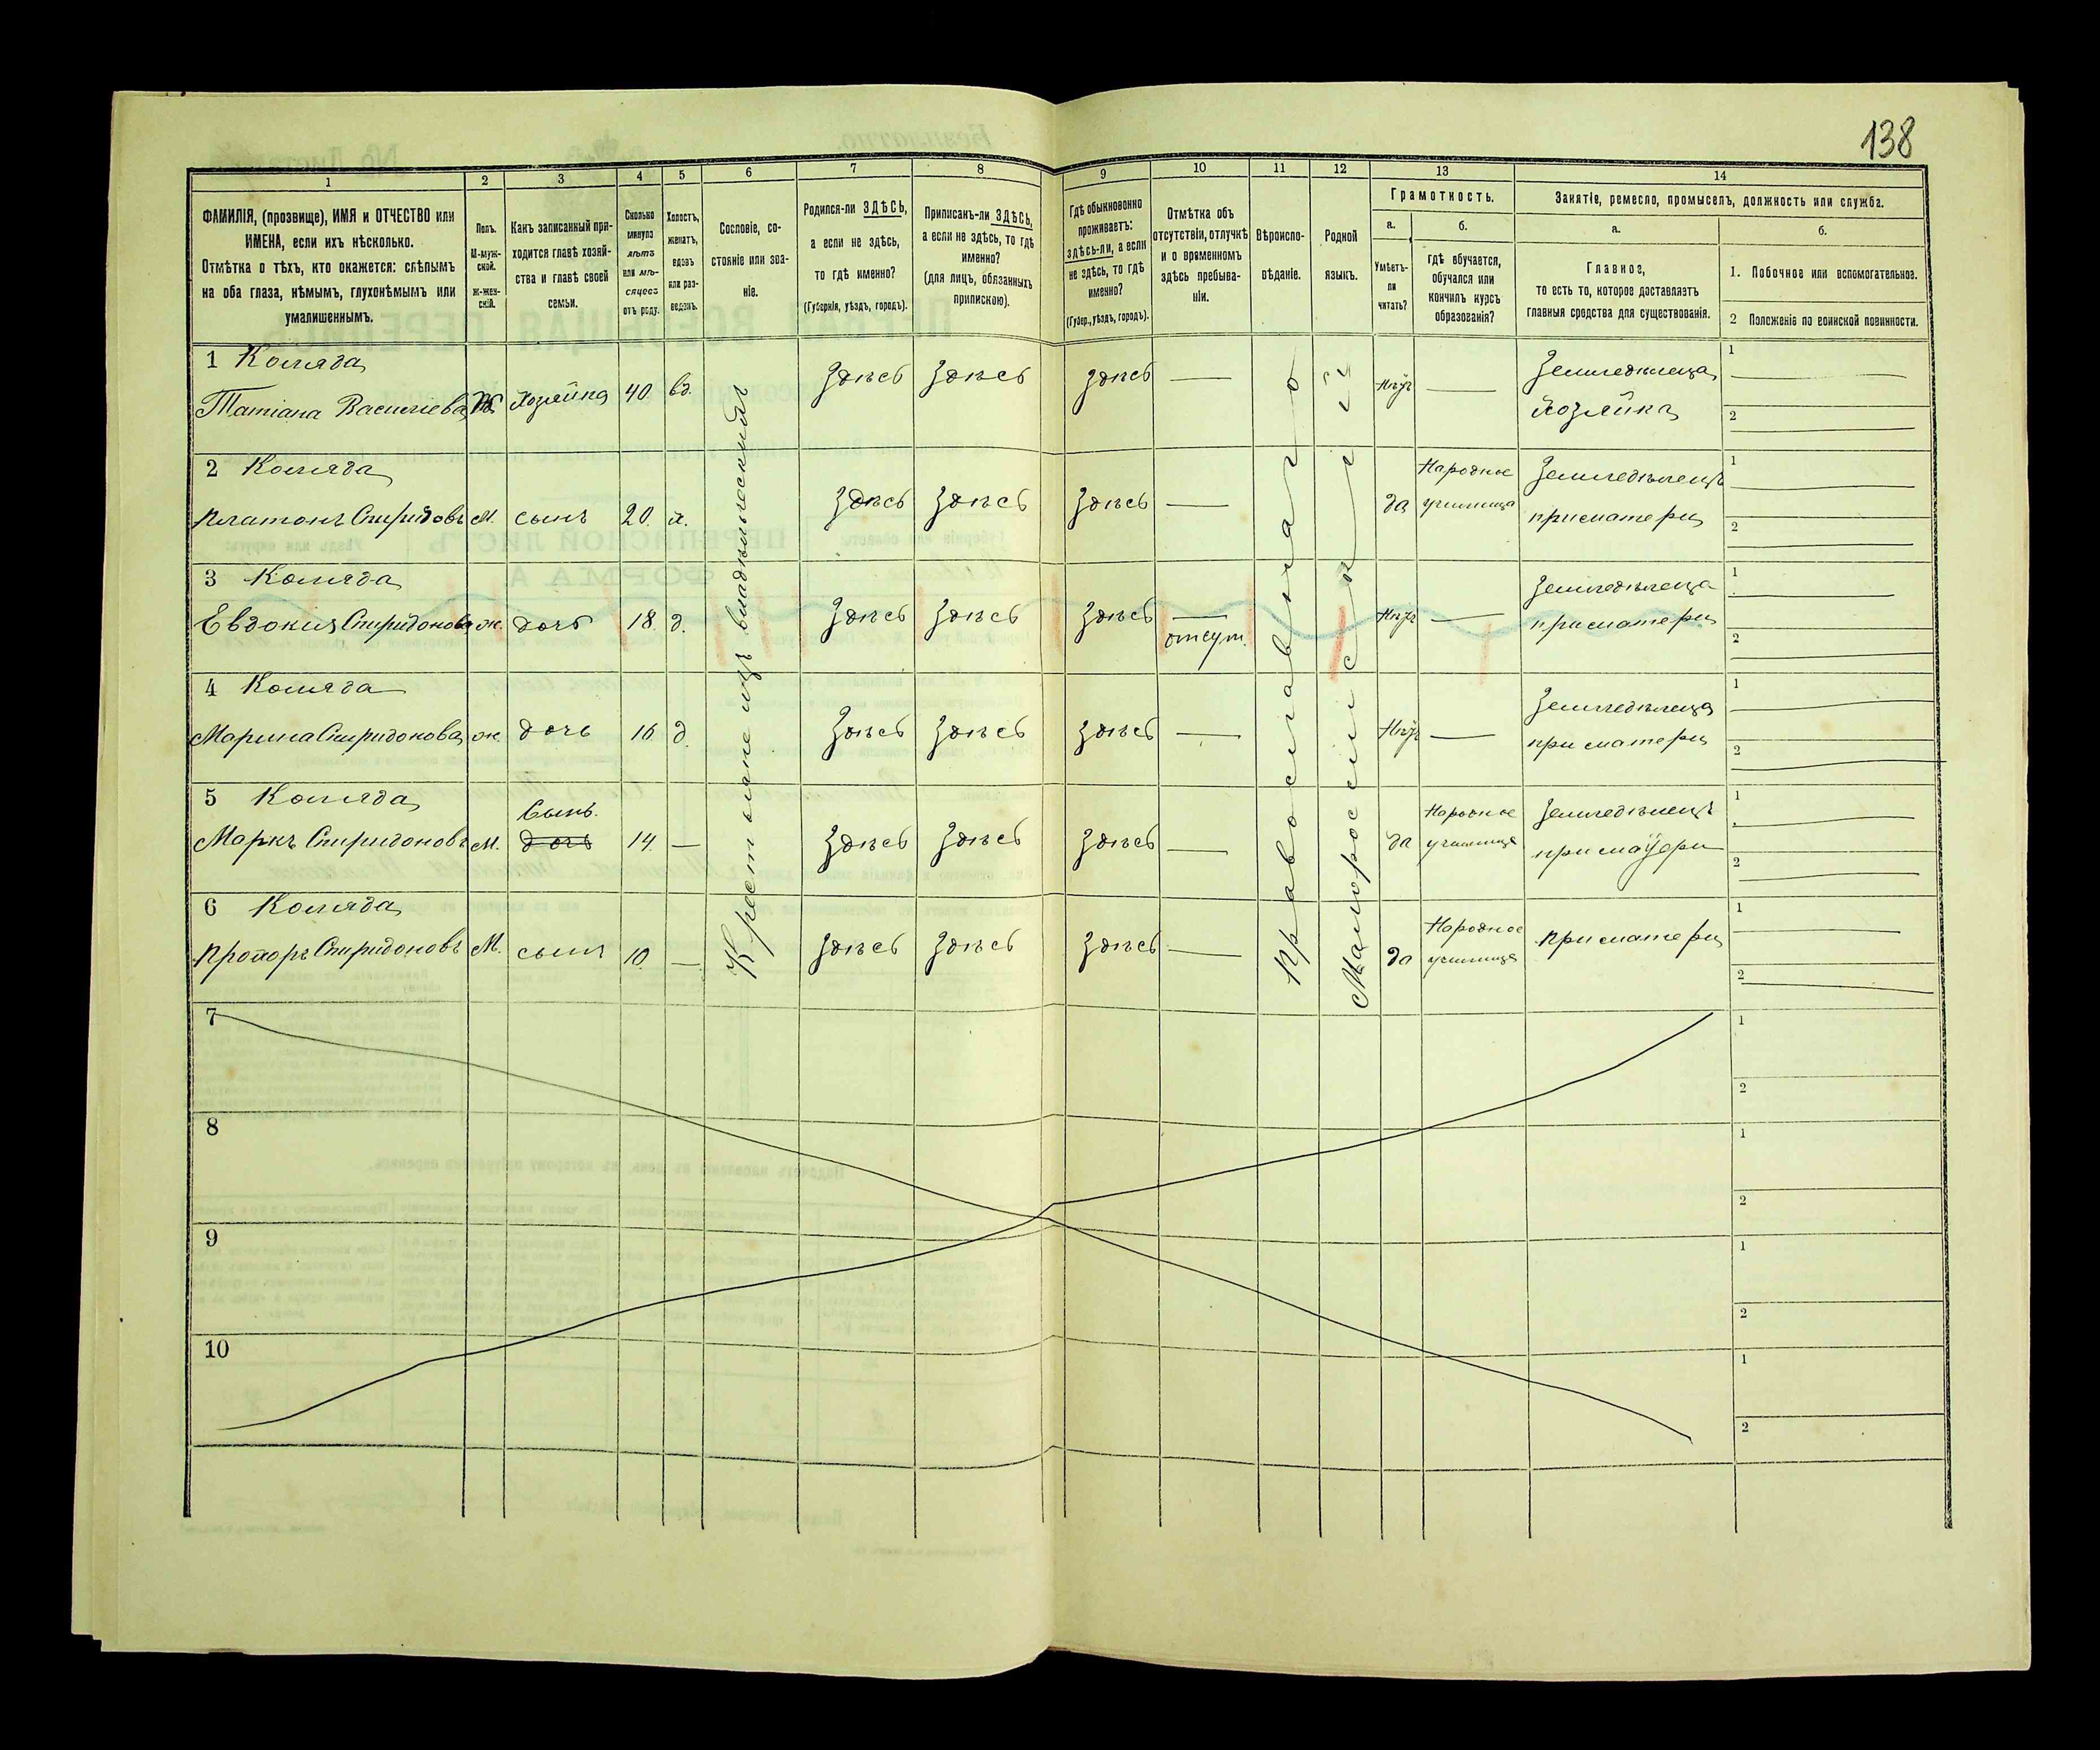 138
1
2
3
4
5
6
7
8
9
10
11
12
13
14
ФАМИЛІЯ, (прозвище), ИМЯ и ОТЧЕСТВО или
ИМЕНА, если ихъ нѣсколько.
Отмѣтка о тѣхъ, кто окажется: слѣпымъ
на оба глаза, нѣмымъ, глухонѣмымъ или
умалишеннымъ.
Полъ.
М-муж-
ской.
Ж-жен-
скій.
Какъ записанный при-
ходится главѣ хозяй-
ства и главѣ своей
семьи.
Сколько
минуло
лѣтъ
или мѣ-
сяцевъ
отъ роду.
Холостъ,
женатъ,
вдовъ
или раз-
веденъ.
Сословіе, со-
стояніе или зва-
ніе.
Родился-ли ЗДѢСЬ,
а если не здѣсь,
то гдѣ именно?
(Губернія, уѣздъ, городъ).
Приписанъ-ли ЗДѢСЬ,
а если не здѣсь, то гдѣ
именно?
(для лицъ, обязанныхъ
припискою).
Гдѣ обыкновенно
проживаетъ:
здѣсь-ли, а если
не здѣсь, то гдѣ
именно?
(Губер., уѣздъ, городъ).
Отмѣтка объ
отсутствіи, отлучкѣ
и о временномъ
здѣсь пребыва-
ніи.
Вѣроиспо-
вѣданіе.
Родной
языкъ.
Грамотность.
а.
б.
Умѣетъ-
ли
читать?
гдѣ обучается,
обучался или
кончилъ курсъ
образованія?
Занятіе, ремесло, промыселъ, должность или служба.
а.
б.
Главное,
то есть то, которое доставляетъ
главныя средства для существованія.
1. Побочное или вспомогательное.
2 Положеніе по воинской повинности.
1 Коляда
Татіана Васильева Ж Хозяйка 40 вд. Здѣсь Здѣсь Здѣсь — нѣтъ — Земледѣлица
Хозяйка
1
2
Крестьяне изъ владѣльческихъ
Православнаго
Малороссійскій
2 Коляда
Платонъ Спиридовъ М. сынъ 20. х. Здѣсь Здѣсь Здѣсь — да Народное
училище Земледѣлецъ
при матери
1
2
3 Коляда
Евдокия Спиридонова ж. дочь 18 д. Здѣсь Здѣсь Здѣсь —
отсут. нѣтъ — Земледѣлица
при матери
1
2
4 Коляда
Марина Спиридонова ж. дочь 16 д. Здѣсь Здѣсь Здѣсь — нѣтъ — Земледѣлица
при матери
1
2
5 Коляда
Сынъ.
Маркъ Спиридоновъ М. дочь 14 — Здѣсь Здѣсь Здѣсь — да Народное
училище Земледѣлецъ
при матери
1
2
6 Коляда
Прохоръ Спиридоновъ М. сынъ 10. — Здѣсь Здѣсь Здѣсь — да Народное
училище при матери
1
2
7
1
2
8
1
2
9
1
2
10
1
2